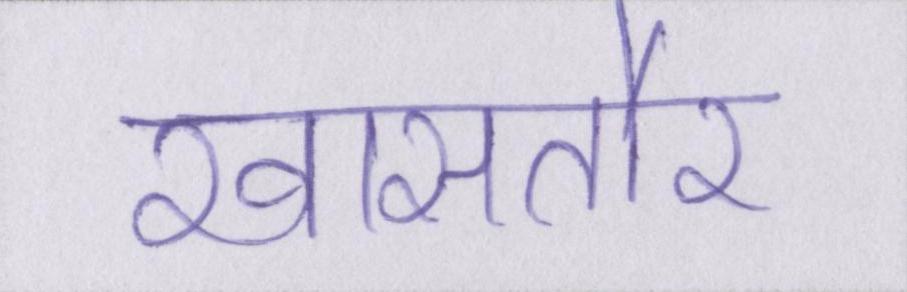 खासतौर